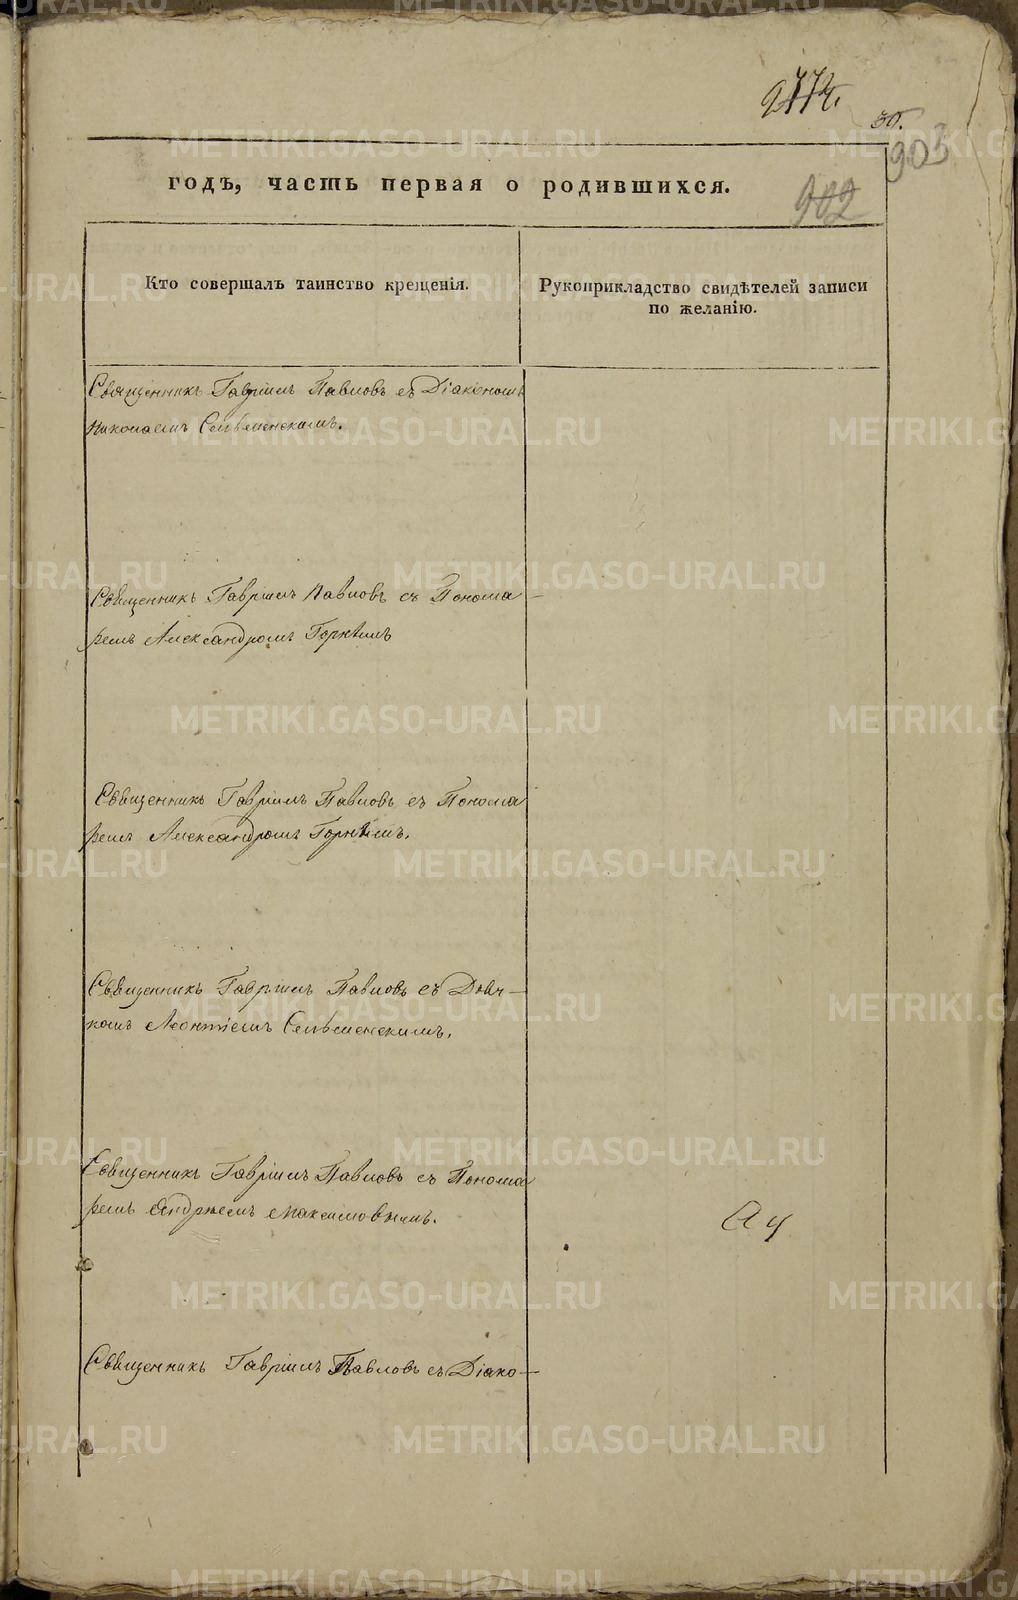 30.
903
902
годъ, часть первая о родившихся.
Кто совершалъ таинство крещенія.
Рукоприкладство свидѣтелей записи
по желанію.
Священникъ Гавріилъ Павловъ съ Діакономъ
Николаемъ Сельменскимъ.
Священникъ Гавріилъ Павловъ съ Понома
ремъ Александромъ Горнымъ
Священникъ Гавріилъ Павловъ съ Понома
ремъ Александромъ Горнымъ.
Священникъ Гавріилъ Павловъ съ Дьяч-
комъ Леонтіемъ Сельменскимъ.
Священникъ Гавріилъ Павловъ съ Понома
ремъ Андреемъ Максимовымъ.
Священникъ Гавріилъ Павловъ съ Діако-
METRIKI.GASO-URAL.RU